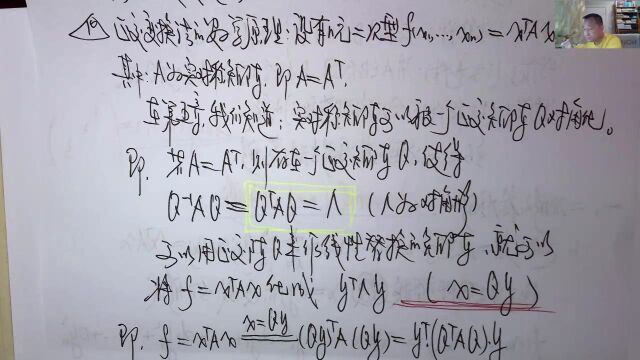 ⑩ 正交变换法的数学原理：设有n元二次型 f(x₁,…,xₙ) = xᵀAx
其中：A为实对称矩阵，即 A=Aᵀ.
在第五章，我们知道：实对称矩阵可以被一个正交矩阵Q对角化。
即. 若A=Aᵀ, 则存在一个正交矩阵Q, 使得
Q⁻¹AQ = QᵀAQ = Λ (Λ为对角形)
可以用正交阵Q来作线性替换的矩阵，就可以
将 f=xᵀAx 化成 yᵀΛy (x=Qy)
即. f=xᵀAx x=Qy (Qy)ᵀA(Qy) = yᵀ(QᵀAQ)·y